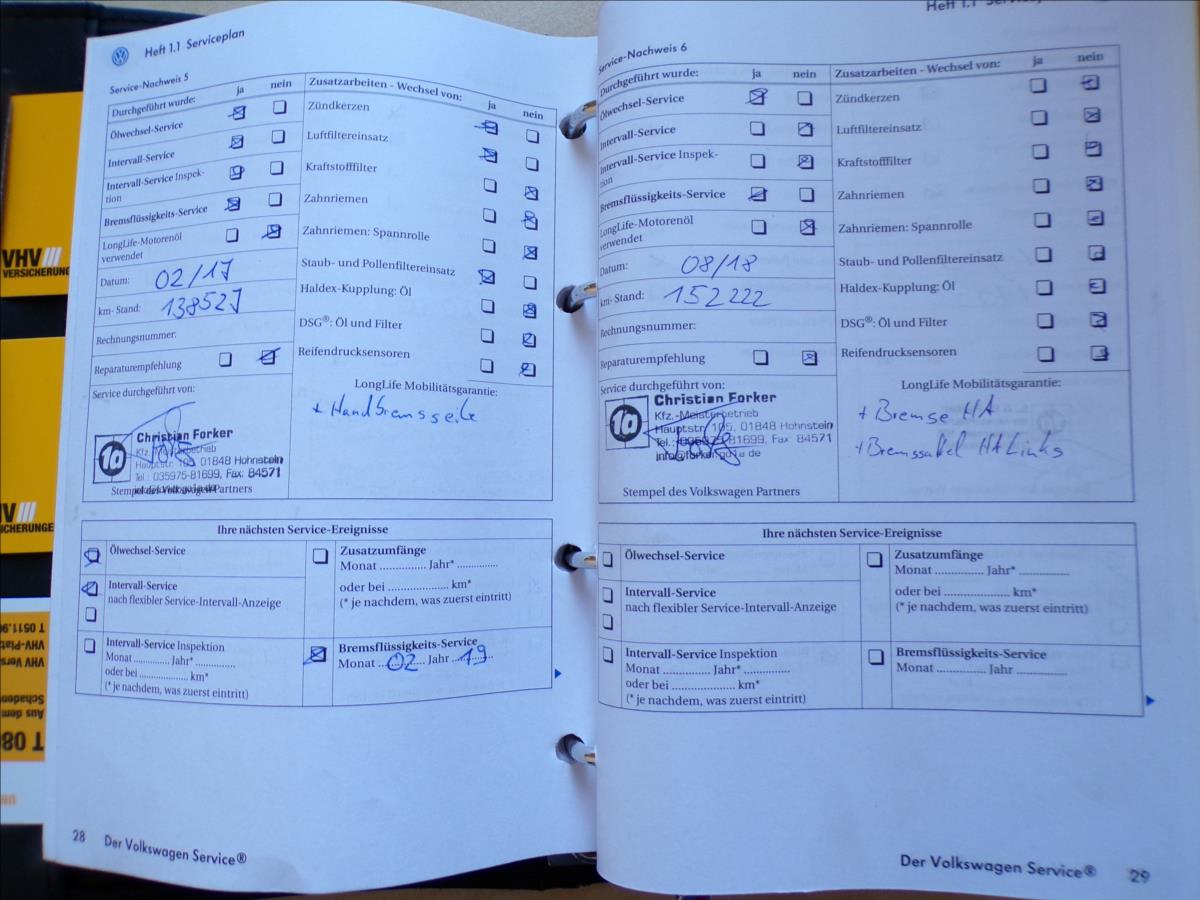 Heft 1.1 Serviceplan
Service-Nachweis 5
Durchgeführt wurde: ja nein
Ölwechsel-Service
Intervall-Service
Intervall-Service Inspek-
tion
Bremsflüssigkeits-Service
LongLife-Motorenöl
verwendet
Datum: 02/17
km-Stand: 138527
Rechnungsnummer:
Reparaturempfehlung
Service durchgeführt von:
1a
Christian Forker
Kfz.-Meisterbetrieb
Hauptstr. 105, 01848 Hohnstein
Tel.: 035975-81699, Fax: 84571
Stempel des Volkswagen Partners
Zusatzarbeiten - Wechsel von: ja nein
Zündkerzen
Luftfiltereinsatz
Kraftstofffilter
Zahnriemen
Zahnriemen: Spannrolle
Staub- und Pollenfiltereinsatz
Haldex-Kupplung: Öl
DSG®: Öl und Filter
Reifendrucksensoren
LongLife Mobilitätsgarantie:
+ Handbremsseile
Ihre nächsten Service-Ereignisse
Ölwechsel-Service
Intervall-Service
nach flexibler Service-Intervall-Anzeige
Intervall-Service Inspektion
Monat ............ Jahr* ............
oder bei .................. km*
(* je nachdem, was zuerst eintritt)
Zusatzumfänge
Monat ............... Jahr* .............
oder bei .................. km*
(* je nachdem, was zuerst eintritt)
Bremsflüssigkeits-Service
Monat 02 Jahr 19
28 Der Volkswagen Service®
Heft 1.1 Serviceplan
Service-Nachweis 6
Durchgeführt wurde: ja nein
Ölwechsel-Service
Intervall-Service
Intervall-Service Inspek-
tion
Bremsflüssigkeits-Service
LongLife-Motorenöl
verwendet
Datum: 08/18
km-Stand: 152222
Rechnungsnummer:
Reparaturempfehlung
Service durchgeführt von:
1a
Christian Forker
Kfz.-Meisterbetrieb
Hauptstr. 105, 01848 Hohnstein
Tel.: 035975-81699, Fax 84571
info@forker.go1a.de
Stempel des Volkswagen Partners
Zusatzarbeiten - Wechsel von: ja nein
Zündkerzen
Luftfiltereinsatz
Kraftstofffilter
Zahnriemen
Zahnriemen: Spannrolle
Staub- und Pollenfiltereinsatz
Haldex-Kupplung: Öl
DSG®: Öl und Filter
Reifendrucksensoren
LongLife Mobilitätsgarantie:
+ Bremse HA
+ Bremssattel HA Links
Ihre nächsten Service-Ereignisse
Ölwechsel-Service
Intervall-Service
nach flexibler Service-Intervall-Anzeige
Intervall-Service Inspektion
Monat ............ Jahr* ..............
oder bei .................. km*
(* je nachdem, was zuerst eintritt)
Zusatzumfänge
Monat ............... Jahr* ...............
oder bei .................. km*
(* je nachdem, was zuerst eintritt)
Bremsflüssigkeits-Service
Monat ............... Jahr ...............
Der Volkswagen Service® 29
VHV
VERSICHERUNG
HV
ICHERUNGE
T 0511.9
VHV-Platz
VHV Vers
Schaden
Aus dem
T 080